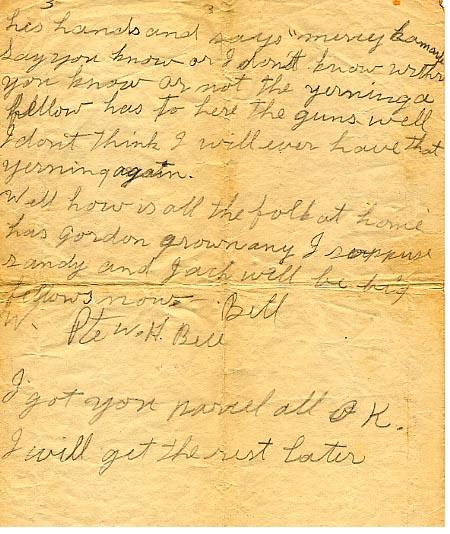 3
his hands and says "mercy Kamar
Say you know or I don't know wethr
you know or not the yerning a
fellow has to here the guns. well
I don't think I will ever have that
yerning again.
Well how is all the folk at home
has Gordon grown any I suppuse
sandy and Jack will be big
fellows now - Bill
W. Pte W. H. Bell
I got you parcel all O K.
I will get the rest later